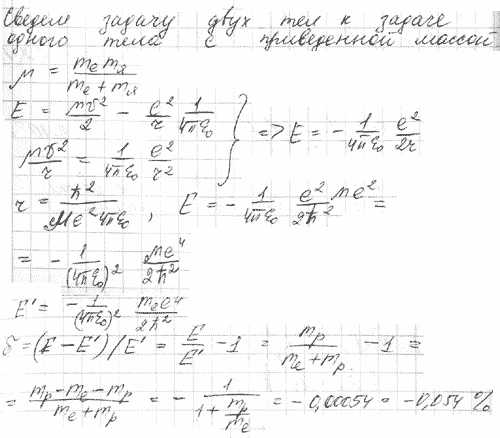 Сведем задачу двух тел к задаче
одного тела с приведенной массой
μ = mₑ mя / (mₑ + mя)
E = μv²/2 − e²/r 1/4πε₀ } => E = − 1/4πε₀ e²/2r
μv²/r = 1/4πε₀ e²/r²
r = ħ²/μe² 4πε₀ , E = − 1/4πε₀ e²/2ħ² μe² =
= − 1/(4πε₀)² μe⁴/2ħ²
E' = − 1/(4πε₀)² mₑe⁴/2ħ²
δ = (E − E')/E' = E/E' − 1 = mₚ/(mₑ + mₚ) − 1 =
= (mₚ − mₑ − mₚ)/(mₑ + mₚ) = − 1/(1 + mₚ/mₑ) = −0,00054 = −0,054 %